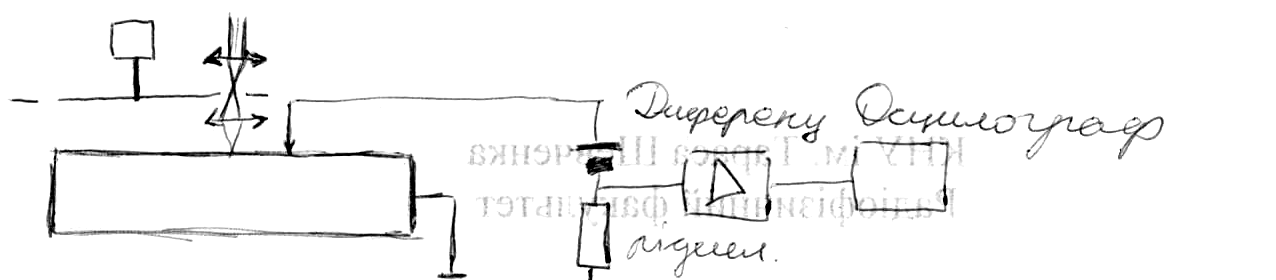 Диференц Осцилограф
КНУ ім. Тараса Шевченка
Радіофізичний факультет
підсил.